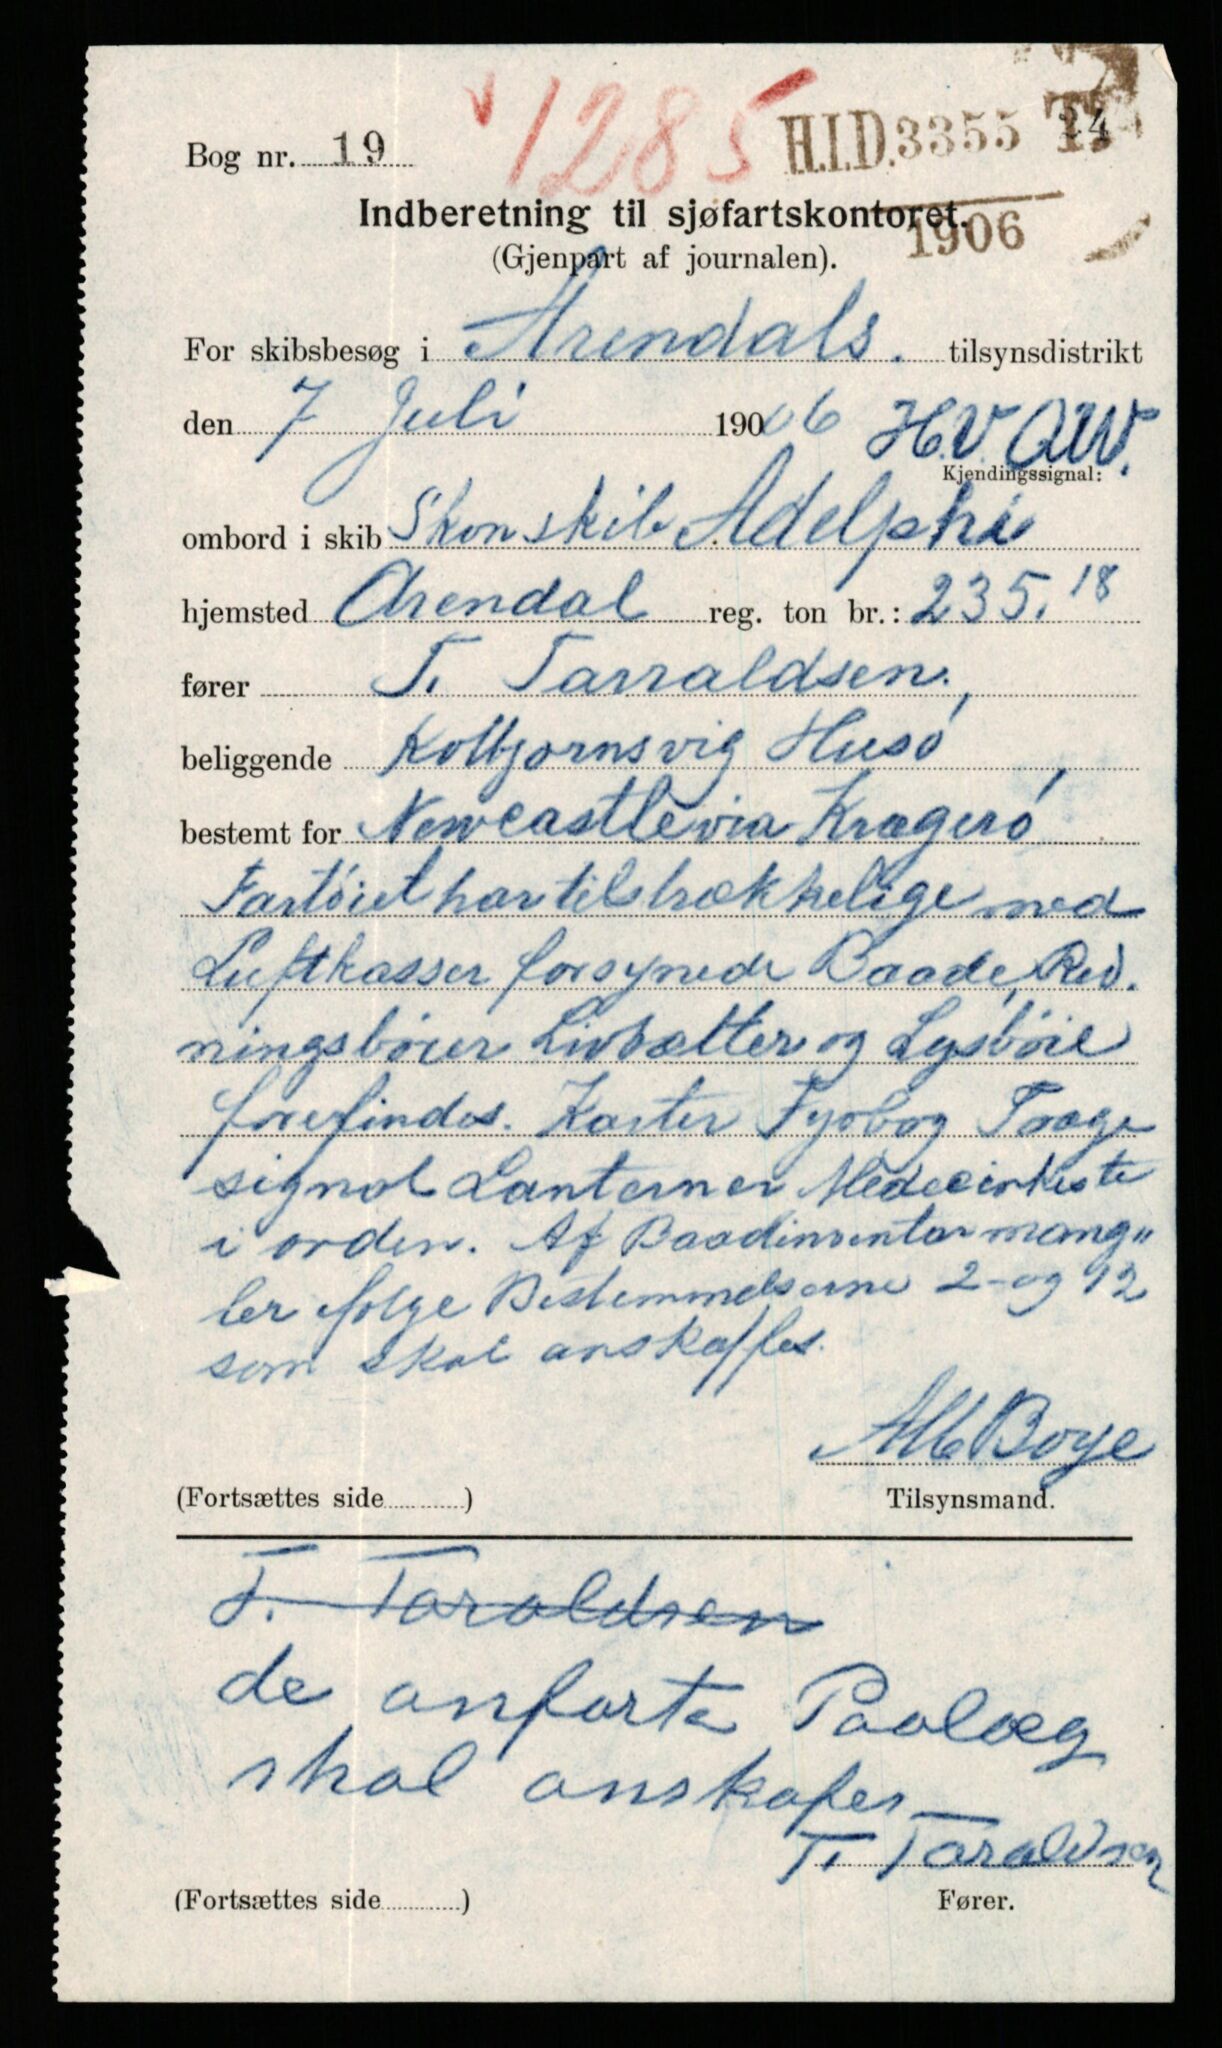 1285
H.I.D. 3355
24
1906
Bog nr. 19
Indberetning til sjøfartskontoret.
(Gjenpart af journalen).
For skibsbesøg i Arendals. tilsynsdistrikt
den 7 Juli 1906 H.V.Q.W.
Kjendingssignal:
ombord i skib Skonskib Adelphi
hjemsted Arendal reg. ton br.: 235.18
fører T. Tarraldsen,
beliggende Kolbjørnsvig Husö,
bestemt for Newcastle via Kragerö
Fartöiet har tilstrækkelige med
Luftkasser forsynede Baade, Red.
ningsböier Livbælter og Lysböie
forefindes. Karter Fyrbog Taage
signal Lanterner Medecinkiste
i orden. Af Baadinventar mang"
ler følge Bestemmelserne 2 og 12
som skal anskaffes.
Alb Boye
(Fortsættes side ) Tilsynsmand.
T. Taraldsen
de anførte Paalæg
skal anskafes
T. Taraldsen
(Fortsættes side ) Fører.